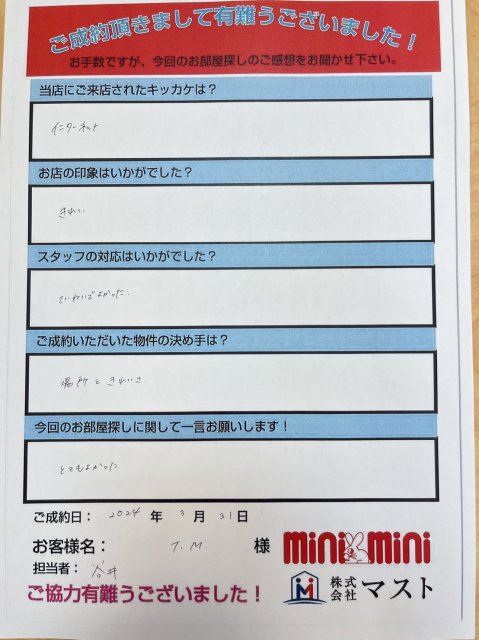 ご成約頂きまして有難うございました！
お手数ですが、今回のお部屋探しのご感想をお聞かせ下さい。
当店にご来店されたキッカケは？
インターネット
お店の印象はいかがでした？
きれい
スタッフの対応はいかがでした？
ていねいでよかった。
ご成約いただいた物件の決め手は？
場所ときれいさ
今回のお部屋探しに関して一言お願いします！
とてもよかった
ご成約日： 2024 年 3 月 31 日
お客様名： T.M. 様
mini mini
担当者： 谷井
ご協力有難うございました！
株式会社 マスト